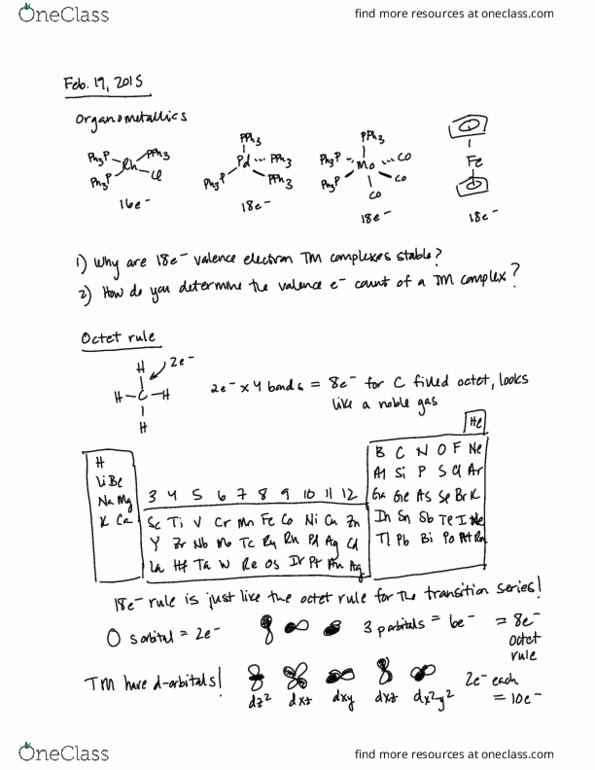 OneClass
find more resources at oneclass.com
Feb. 19, 2015
Organometallics
Ph3P PPh3 Rh Ph3P Cl
PPh3 Pd PPh3 Ph3P PPh3
PPh3 Ph3P Mo CO Ph3P CO CO
Fe
16e⁻ 18e⁻ 18e⁻ 18e⁻
1) Why are 18e⁻ valence electron TM complexes stable?
2) How do you determine the valence e⁻ count of a TM complex?
Octet rule
H 2e⁻
H-C-H
H
2e⁻ x 4 bonds = 8e⁻ for C filled octet, looks
like a noble gas
He
H B C N O F Ne
Li Be Al Si P S Cl Ar
Na Mg 3 4 5 6 7 8 9 10 11 12 Ga Ge As Se Br K
K Ca Sc Ti V Cr Mn Fe Co Ni Cu Zn In Sn Sb Te I Xe
Y Zr Nb Mo Tc Ru Rh Pd Ag Cd Tl Pb Bi Po At Rn
La Hf Ta W Re Os Ir Pt Au Ag
18e⁻ rule is just like the octet rule for the transition series!
s orbital = 2e⁻ 3 p orbitals = 6e⁻ = 8e⁻
octet
rule
TM have d-orbitals! 2e⁻ each
dz² dxz dxy dxz dx²y² = 10e⁻
OneClass
find more resources at oneclass.com